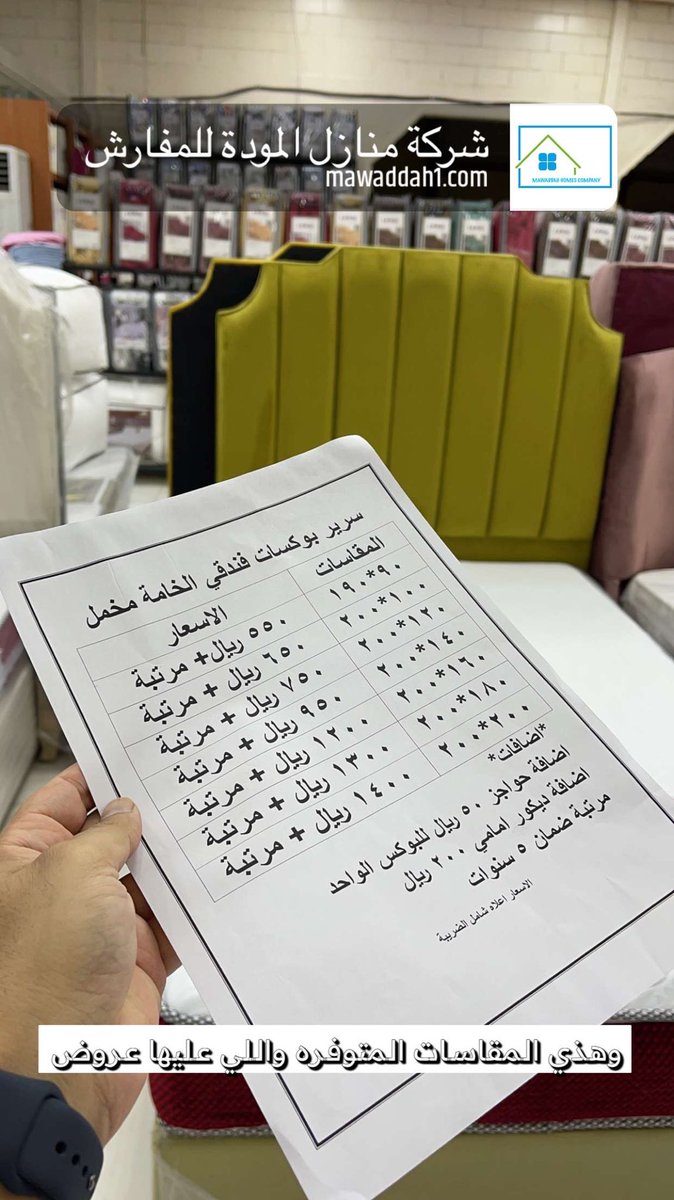 شركة منازل المودة للمفارش
mawaddah1.com
MAWADDAH HOMES COMPANY
سرير بوكسات فندقي الخامة مخمل
المقاسات الاسعار
٩٠*١٩٠ ٥٥٠ ريال+ مرتبة
١٠٠*٢٠٠ ٦٥٠ ريال + مرتبة
١٢٠*٢٠٠ ٧٥٠ ريال + مرتبة
١٤٠*٢٠٠ ٩٥٠ ريال + مرتبة
١٦٠*٢٠٠ ١٢٠٠ ريال + مرتبة
١٨٠*٢٠٠ ١٣٠٠ ريال + مرتبة
٢٠٠*٢٠٠ ١٤٠٠ ريال + مرتبة
*اضافات*
اضافة حواجز ٥٠ ريال للبوكس الواحد
اضافة ديكور امامي ٢٠٠ ريال
مرتبة ضمان ٥ سنوات
الاسعار اعلاه شامل الضريبة
وهذي المقاسات المتوفره واللي عليها عروض